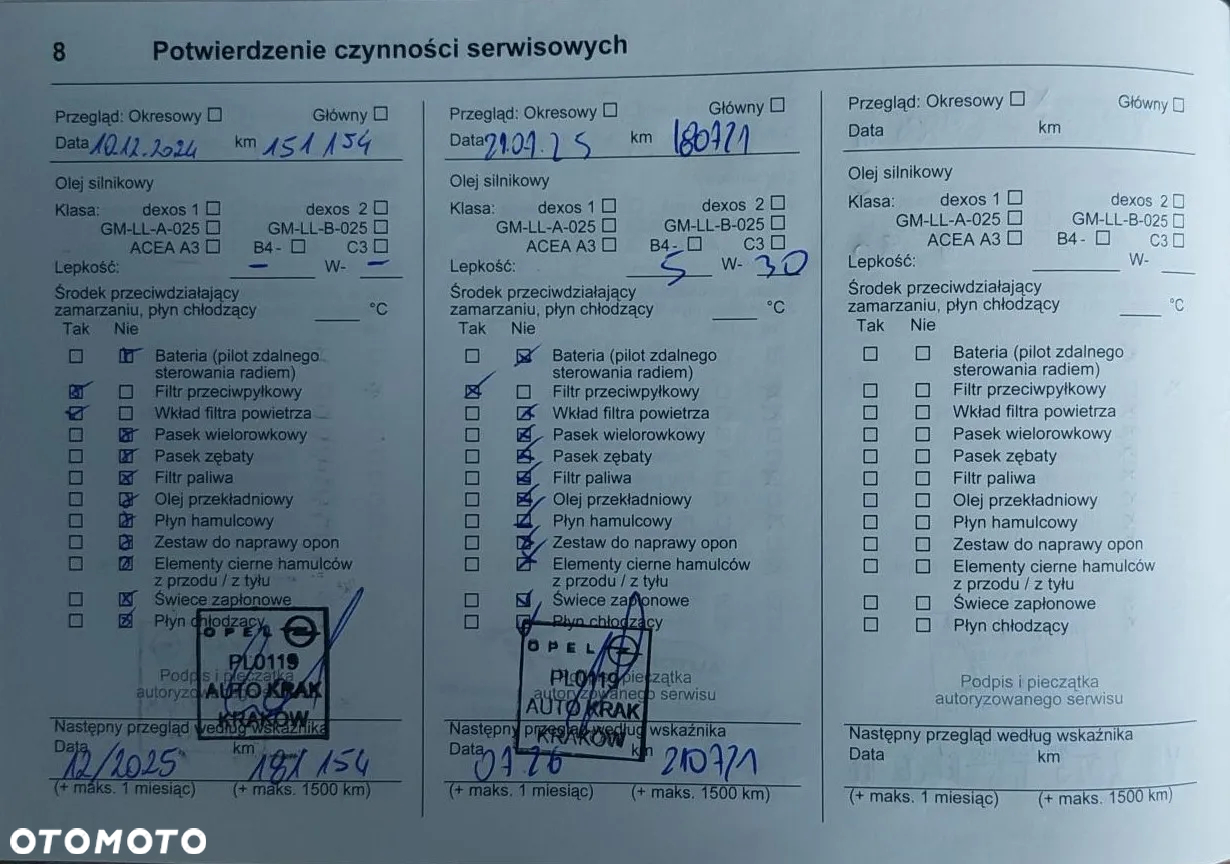 8 Potwierdzenie czynności serwisowych
Przegląd: Okresowy Główny
Data 10.12.2024 km 151 154
Olej silnikowy
Klasa: dexos 1 dexos 2
GM-LL-A-025 GM-LL-B-025
ACEA A3 B4 - C3
Lepkość: – W- –
Środek przeciwdziałający
zamarzaniu, płyn chłodzący °C
Tak Nie
Bateria (pilot zdalnego
sterowania radiem)
Filtr przeciwpyłkowy
Wkład filtra powietrza
Pasek wielorowkowy
Pasek zębaty
Filtr paliwa
Olej przekładniowy
Płyn hamulcowy
Zestaw do naprawy opon
Elementy cierne hamulców
z przodu / z tyłu
Świece zapłonowe
Płyn chłodzący
OPEL
PL0119
AUTO KRAK
KRAKÓW
Podpis i pieczątka
autoryzowanego serwisu
Następny przegląd według wskaźnika
Data 12/2025 km 181 154
(+ maks. 1 miesiąc) (+ maks. 1500 km)
Przegląd: Okresowy Główny
Data 21.07.25 km 180771
Olej silnikowy
Klasa: dexos 1 dexos 2
GM-LL-A-025 GM-LL-B-025
ACEA A3 B4 - C3
Lepkość: 5 W- 30
Środek przeciwdziałający
zamarzaniu, płyn chłodzący °C
Tak Nie
Bateria (pilot zdalnego
sterowania radiem)
Filtr przeciwpyłkowy
Wkład filtra powietrza
Pasek wielorowkowy
Pasek zębaty
Filtr paliwa
Olej przekładniowy
Płyn hamulcowy
Zestaw do naprawy opon
Elementy cierne hamulców
z przodu / z tyłu
Świece zapłonowe
Płyn chłodzący
OPEL
PL0119
AUTO KRAK
KRAKÓW
pieczątka
autoryzowanego serwisu
Następny przegląd według wskaźnika
Data 07.26 km 210771
(+ maks. 1 miesiąc) (+ maks. 1500 km)
Przegląd: Okresowy Główny
Data km
Olej silnikowy
Klasa: dexos 1 dexos 2
GM-LL-A-025 GM-LL-B-025
ACEA A3 B4 - C3
Lepkość: W-
Środek przeciwdziałający
zamarzaniu, płyn chłodzący °C
Tak Nie
Bateria (pilot zdalnego
sterowania radiem)
Filtr przeciwpyłkowy
Wkład filtra powietrza
Pasek wielorowkowy
Pasek zębaty
Filtr paliwa
Olej przekładniowy
Płyn hamulcowy
Zestaw do naprawy opon
Elementy cierne hamulców
z przodu / z tyłu
Świece zapłonowe
Płyn chłodzący
Podpis i pieczątka
autoryzowanego serwisu
Następny przegląd według wskaźnika
Data km
(+ maks. 1 miesiąc) (+ maks. 1500 km)
OTOMOTO